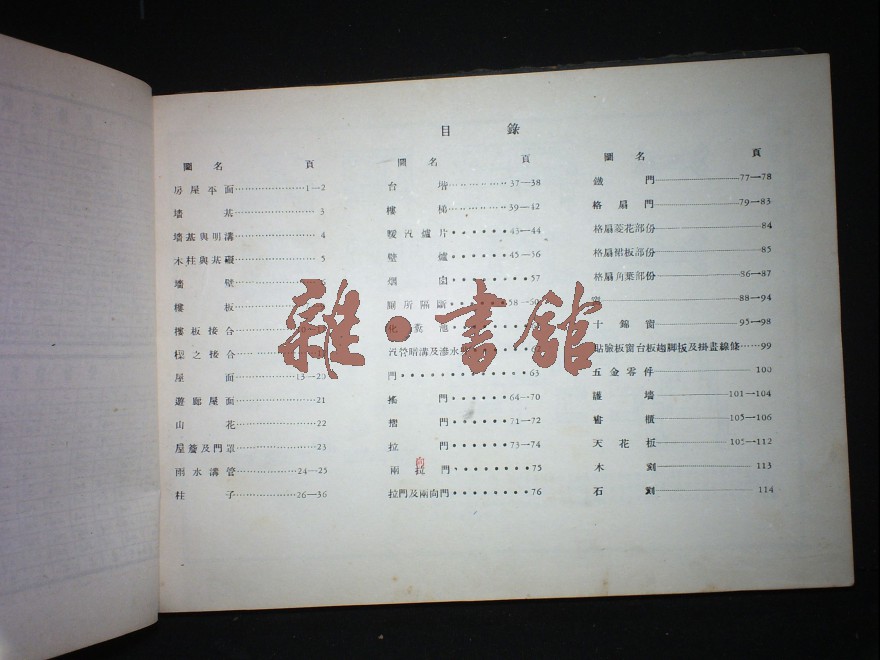 目 錄
圖 名 頁
房屋平面…………………1—2
墻 基…………………3
墻基與明溝…………………4
木柱與基礎…………………5
墻 壁
樓 板
樓板接合
之接合
屋 面…………………13—20
遊廊屋面…………………21
山 花…………………22
屋簷及門罩…………………23
雨水溝管…………………24—25
柱 子…………………26—36
圖 名 頁
台 堦…………………37—38
樓 梯…………………39—42
暖汽爐片…………………43—44
壁 爐…………………45—36
烟 囱…………………57
廁所隔斷…………………58
化糞池
汽管暗溝及滲水
門…………………63
搖 門…………………64—70
摺 門…………………71—72
拉 門…………………73—74
兩向門…………………75
拉門及兩向門…………………76
圖 名 頁
鐵 門…………………77—78
格扇門…………………79—83
格扇菱花部份…………………84
格扇裙板部份…………………85
格扇角葉部份…………………86—87
窗…………………88—94
十錦窗…………………95—98
貼臉板窗台板踢脚板及掛畫線條…………………99
五金零件…………………100
護 墻…………………101—104
書 櫃…………………105—106
天花板…………………105—112
木 刻…………………113
石 刻…………………114
雜·書館